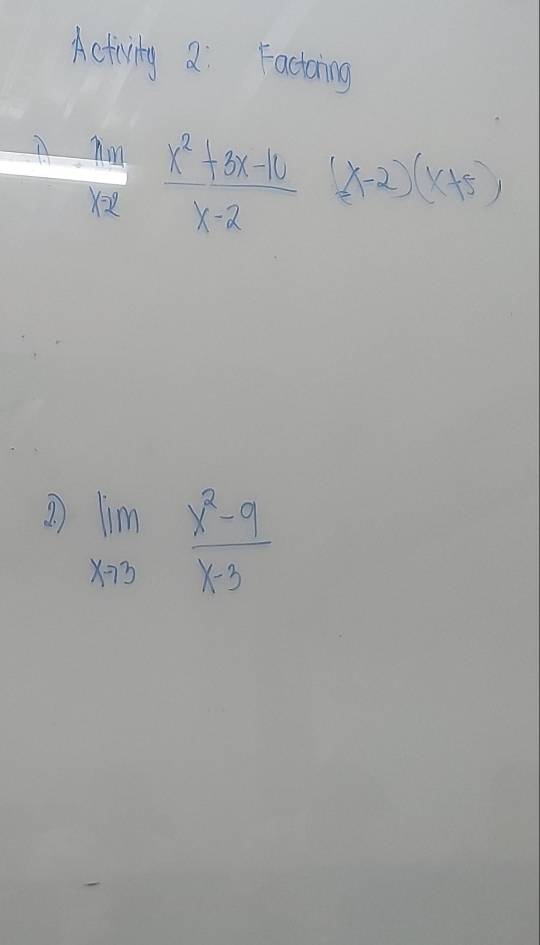 Activity 2: Factoring
1) lim x²+3x-10 (x-2)(x+5)
x→2 x-2
2.) lim x²-9
x→3 x-3